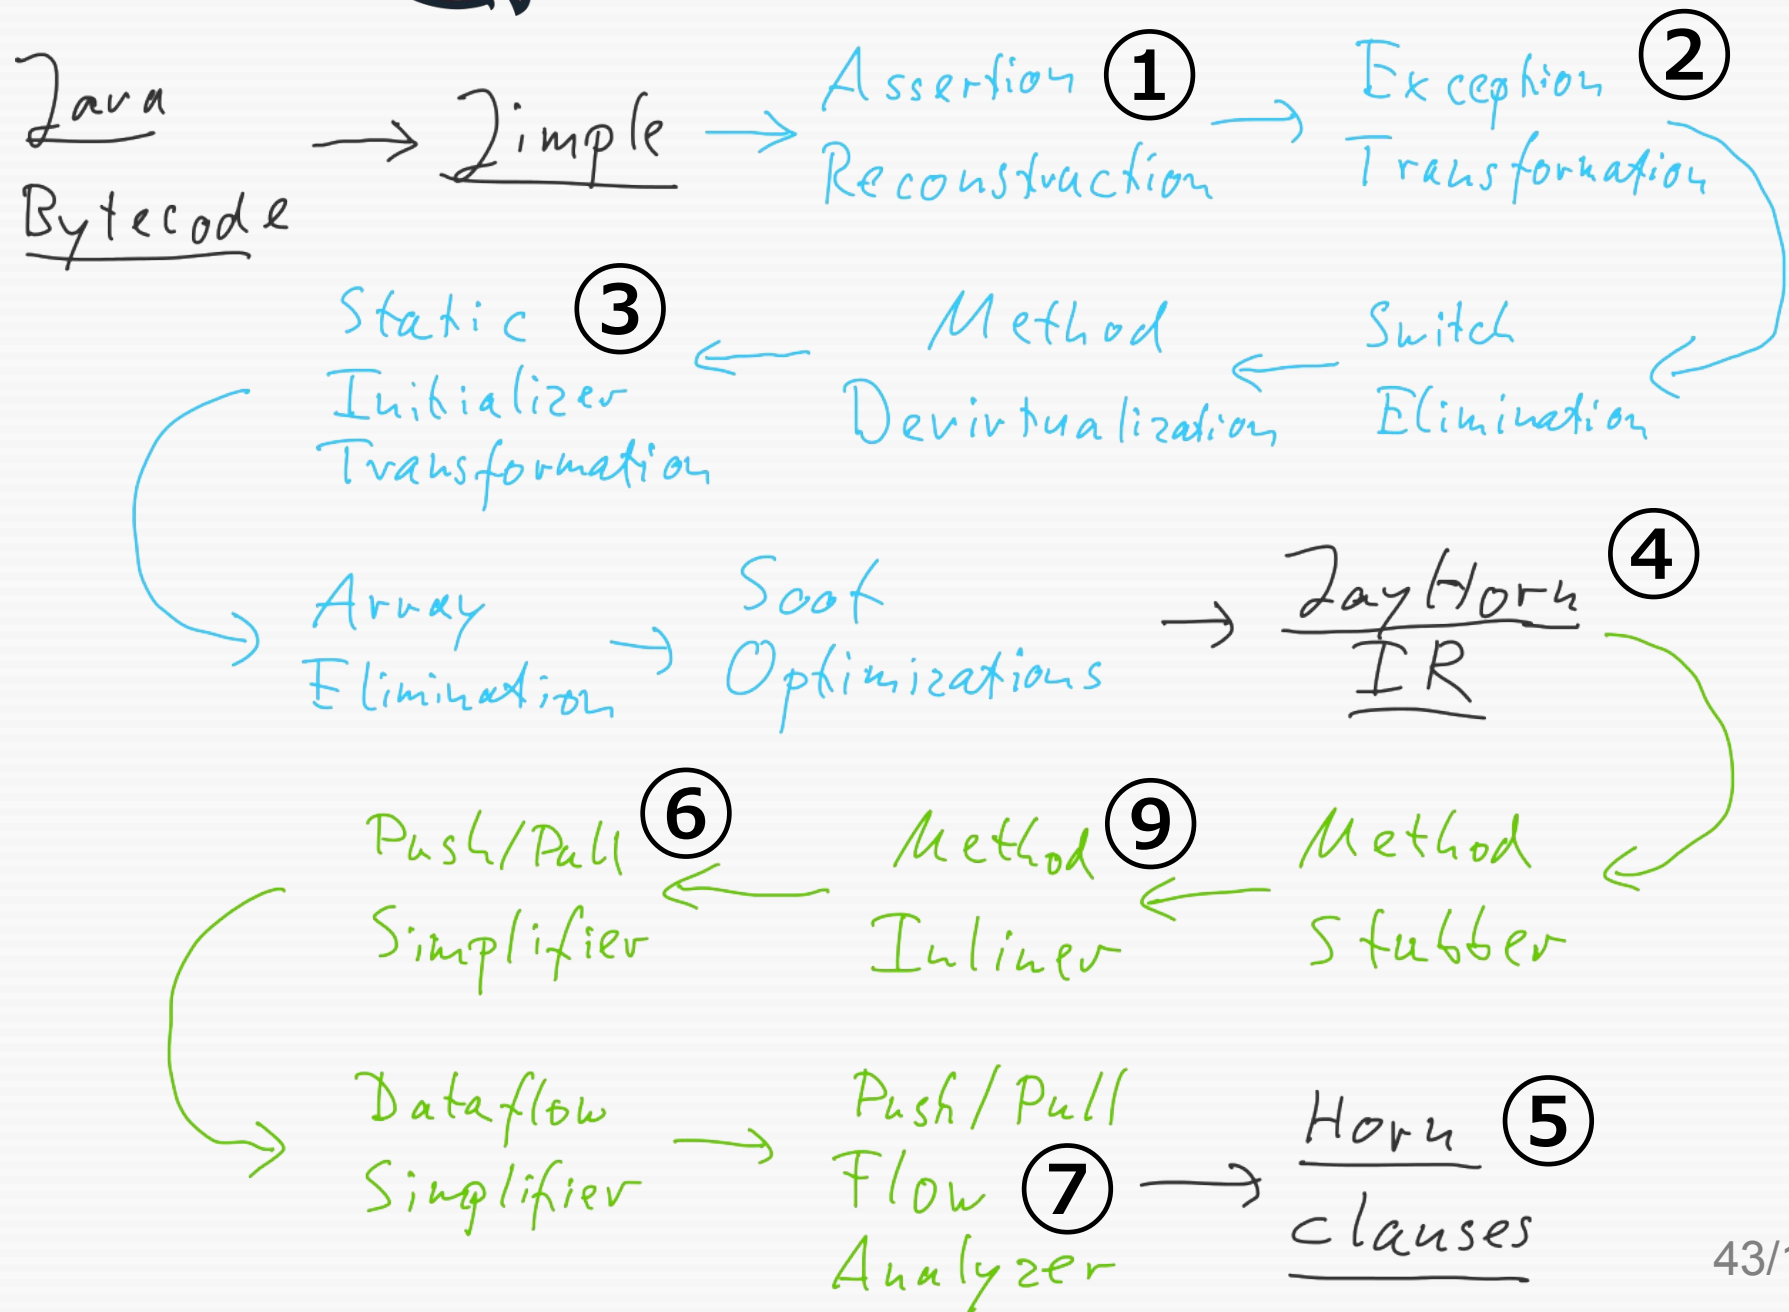 Java
Bytecode
Jimple
Assertion ①
Reconstruction
Exception ②
Transformation
Switch
Elimination
Method
Devirtualization
Static ③
Initializer
Transformation
Array
Elimination
Soot
Optimizations
JayHorn ④
IR
Method
Stubber
Method ⑨
Inliner
Push/Pull ⑥
Simplifier
Dataflow
Simplifier
Push/Pull
Flow ⑦
Analyzer
Horn ⑤
clauses
43/